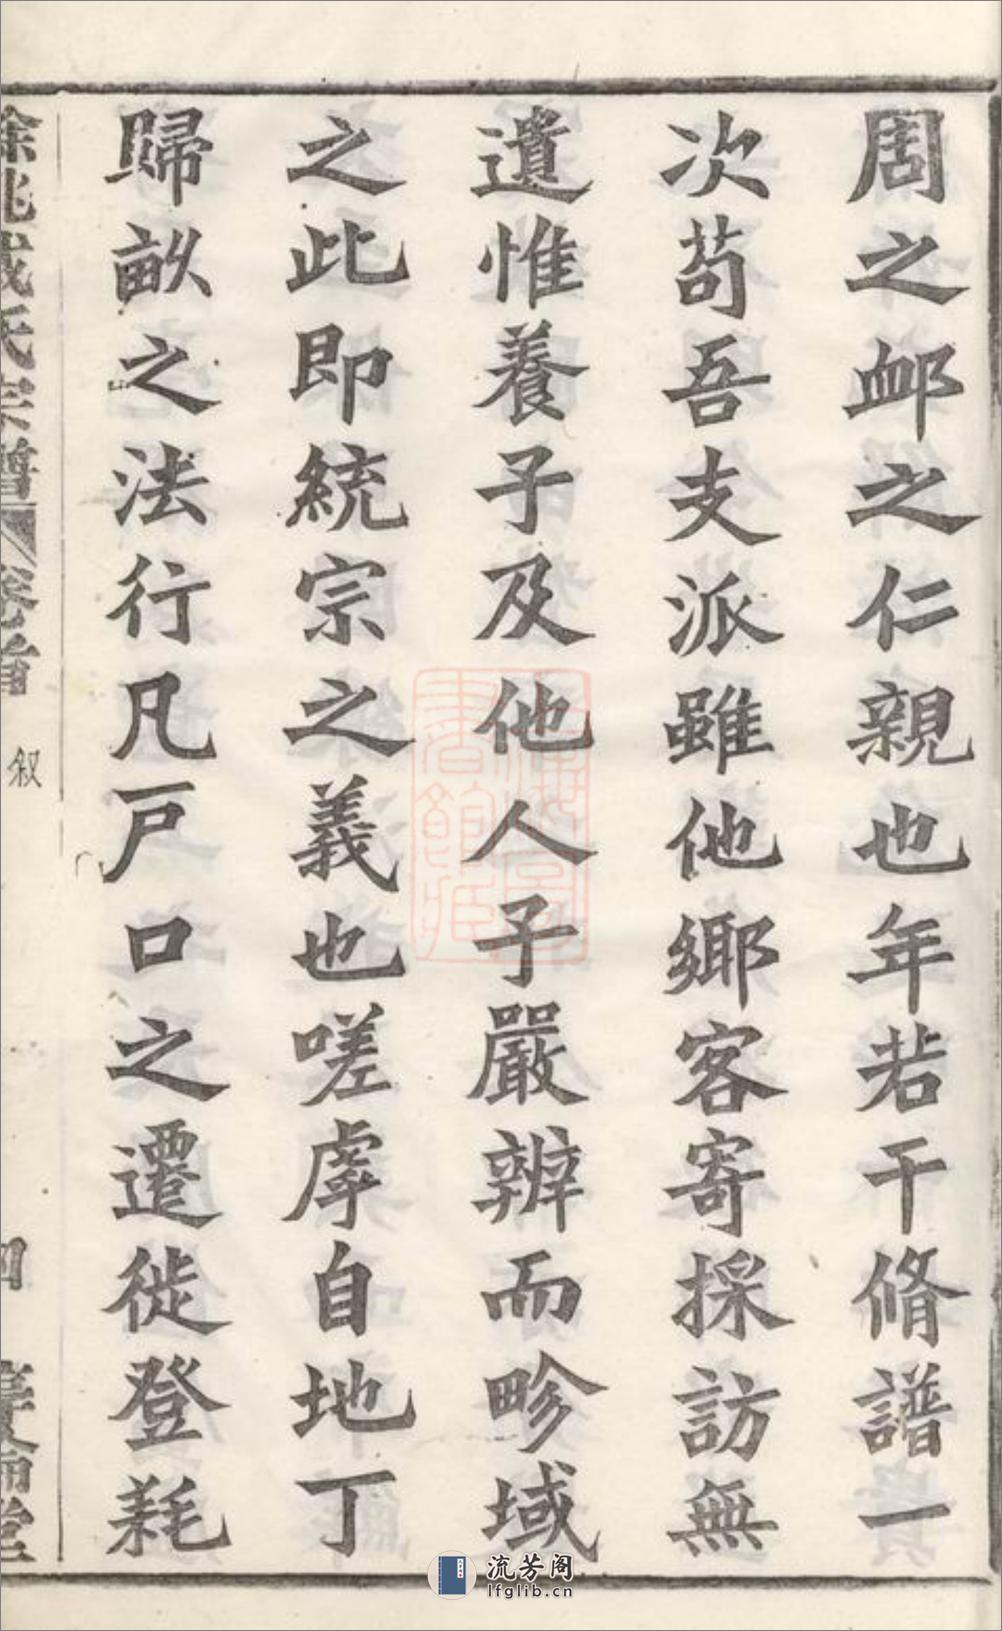 周之卹之仁親也年若干脩譜一
次苟吾支派雖他鄉客寄採訪無
遺惟養子及他人子嚴辨而畛域
之此即統宗之義也嗟虖自地丁
歸畝之法行凡戸口之遷徙登耗
氏宗譜 卷首 叙 四
流芳阁
lfglib.cn